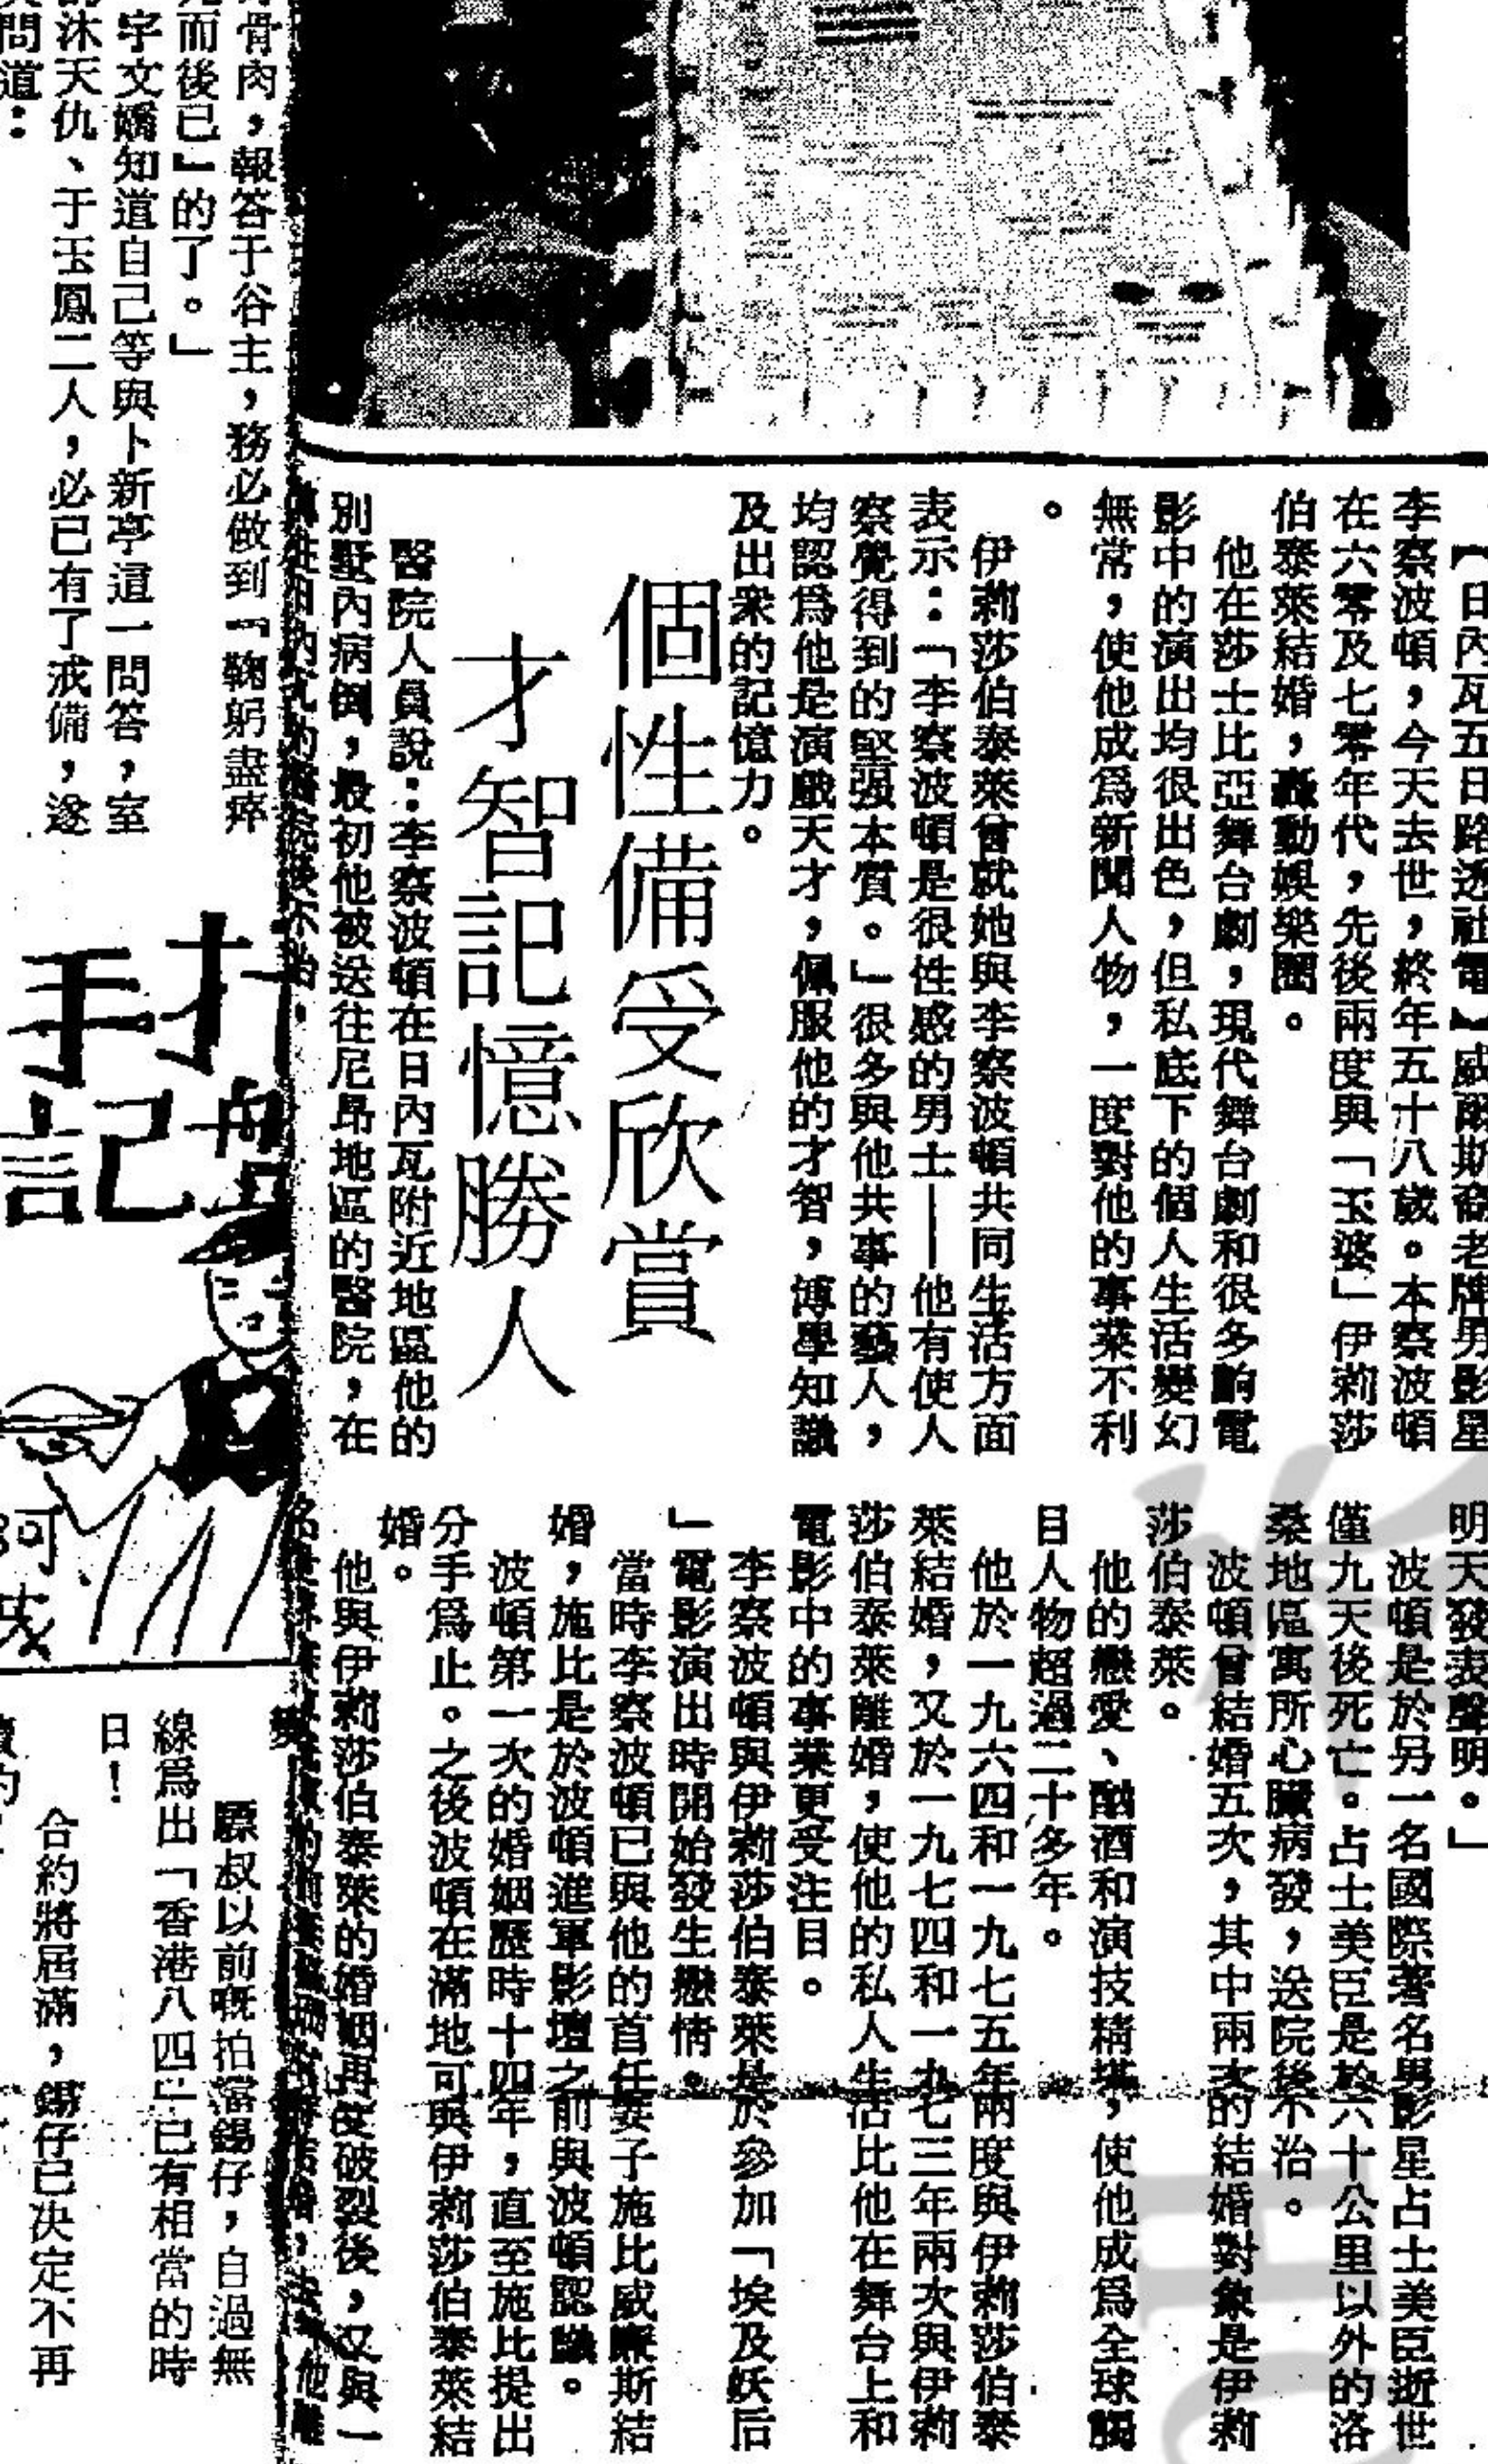 【日內瓦五日路透社電】威爾斯裔老牌男影星
李察波頓，今天去世，終年五十八歲。本察波頓
在六零及七零年代，先後兩度與「玉婆」伊莉莎
伯泰萊結婚，轟動娛樂圈。
他在莎士比亞舞台劇，現代舞台劇和很多齣電
影中的演出均很出色，但私底下的個人生活變幻
無常，使他成爲新聞人物，一度對他的事業不利
。
伊莉莎伯泰萊曾就她與李察波頓共同生活方面
表示：「李察波頓是很性感的男士——他有使人
察覺得到的堅强本質。」很多與他共事的藝人，
均認爲他是演戲天才，佩服他的才智，博學知識
及出衆的記憶力。
個性備受欣賞
才智記憶勝人
醫院人員說：李察波頓在日內瓦附近地區他的
別墅內病倒，最初他被送往尼昂地區的醫院，在
明天發表聲明。」
波頓是於另一名國際著名男影星占士美臣逝世
僅九天後死亡。占士美臣是於六十公里以外的洛
桑地區寓所心臟病發，送院後不治。
波頓曾結婚五次，其中兩次的結婚對象是伊莉
莎伯泰萊。
他的戀愛、酗酒和演技精堪，使他成爲全球觸
目人物超過二十多年。
他於一九六四和一九七五年兩度與伊莉莎伯泰
萊結婚，又於一九七四和一九七三年兩次與伊莉
莎伯泰萊離婚，使他的私人生活比他在舞台上和
電影中的事業更受注目。
李察波頓與伊莉莎伯泰萊是於參加「埃及妖后
」電影演出時開始發生戀情。
當時李察波頓已與他的首任妻子施比威廉斯結
婚，施比是於波頓進軍影壇之前與波頓認識。
波頓第一次的婚姻歷時十四年，直至施比提出
分手爲止。之後波頓在滿地可與伊莉莎伯泰萊結
婚。
他與伊莉莎伯泰萊的婚姻再度破裂後，又與一
骨肉，報答于谷主，務必做到『鞠躬盡瘁
而後已』的了。」
宇文嬌知道自己等與卜新亭這一問答，室
沐天仇、于玉鳳二人，必已有了戒備，遂
問道：
手記
驃叔以前嘅拍檔錫仔，自過無
線爲出「香港八四」已有相當的時
日！
合約將屆滿，錫仔已決定不再